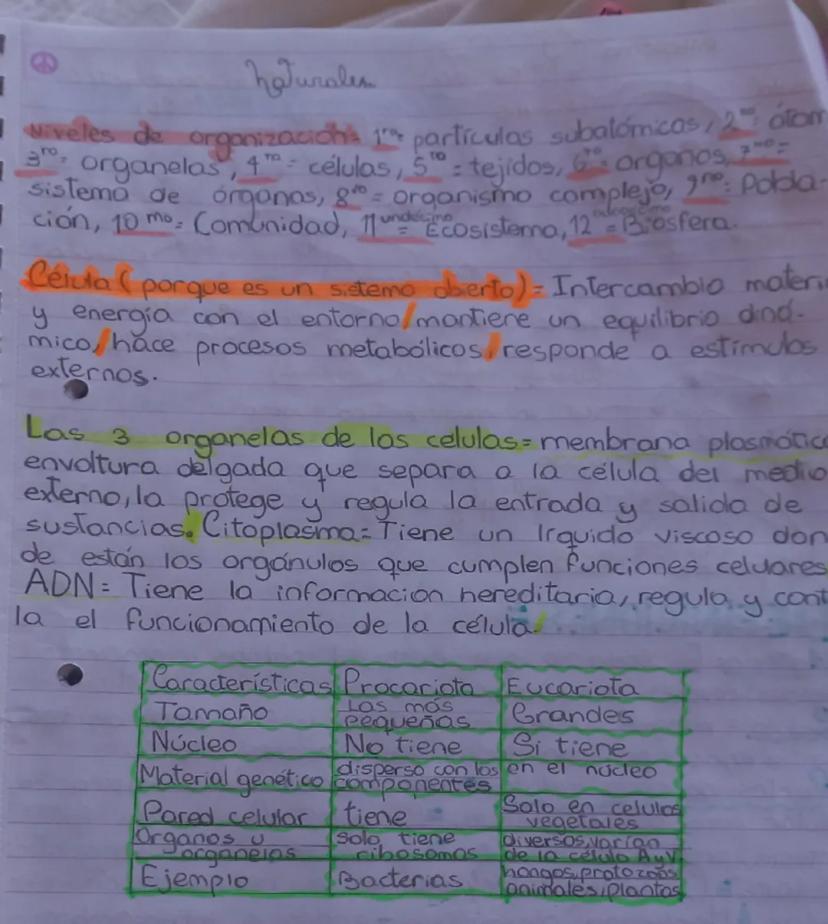 Naturales
Niveles de organización= 1ro= partículas subatómicas, 2do= átom
3ro= organelas, 4to= células, 5to= tejidos, 6to= organos, 7mo=
sistema de órganos, 8vo= organismo complejo, 9no= Pobla-
ción, 10mo= Comunidad, 11 undécimo= Ecosistema, 12 = Biosfera.
Célula (porque es un sistema abierto)= Intercambia materi
y energía con el entorno/mantiene un equilibrio diná-
mico/hace procesos metabólicos/responde a estímulos
externos.
Las 3 organelas de las celulas= membrana plasmática
envoltura delgada que separa a la célula del medio
externo, la protege y regula la entrada y salida de
sustancias. Citoplasma= Tiene un lrquido viscoso don
de están los orgánulos que cumplen funciones celulares
ADN= Tiene la informacion hereditaria, regula y cont
la el funcionamiento de la célula.
Características Procariota Eucariota
Tamaño Las más pequeñas Grandes
Núcleo No tiene Si tiene
Material genético disperso con los componentes en el núcleo
Pared celular tiene Solo en celulas vegetales
Organos u organelas solo tiene ribosomas diversos, varían de la célula A y V
Ejemplo Bacterias hongos, protozoos animales, plantas